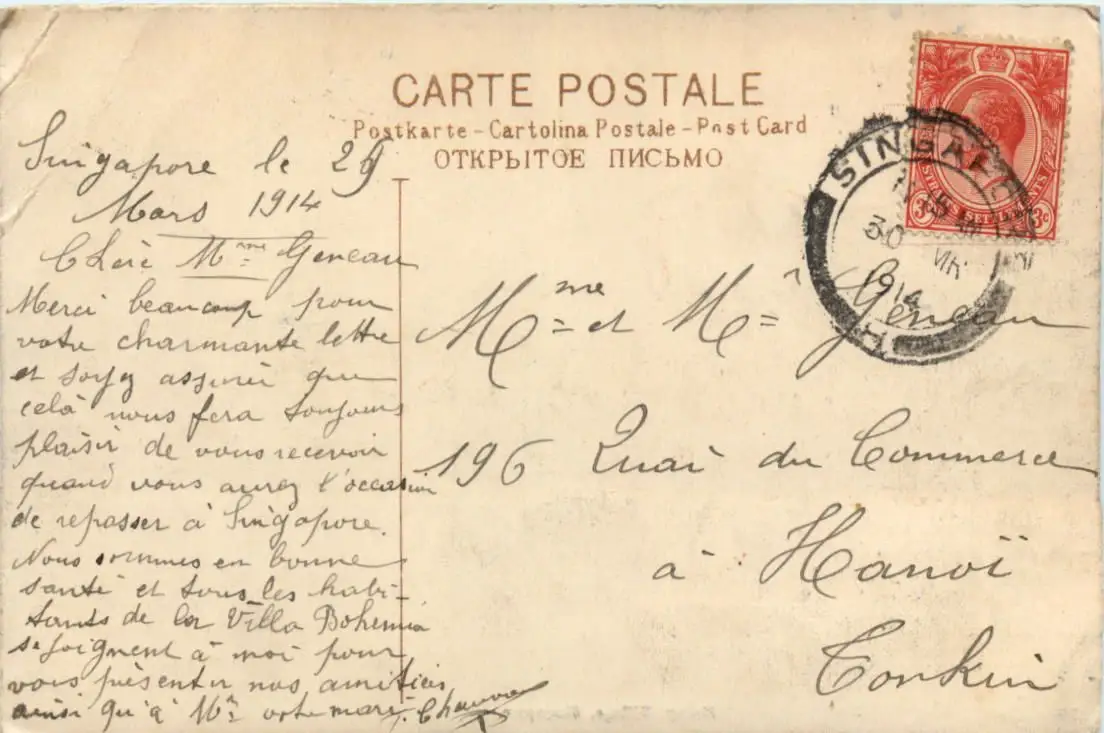 CARTE POSTALE
Postkarte - Cartolina Postale - Post Card
ОТКРЫТОЕ ПИСЬМО
Singapore le 29
Mars 1914
Chère Mme Geneau
Merci beaucoup pour
votre charmante lettre
et soyez assuré que
celà nous fera toujours
plaisir de vous recevoir
quand vous aurez l'occasion
de repasser à Singapore.
Nous sommes en bonne
santé et tous les habi-
tants de la Villa Bohemia
se joignent à moi pour
vous présenter nos amitiés
ainsi qu'à Mr votre mari.
Mme et Mr Geneau
196 Quai du Commerce
à Hanoï
Tonkin
SINGAPORE
30 MR
1914
STRAITS SETTLEMENTS
3c 3c